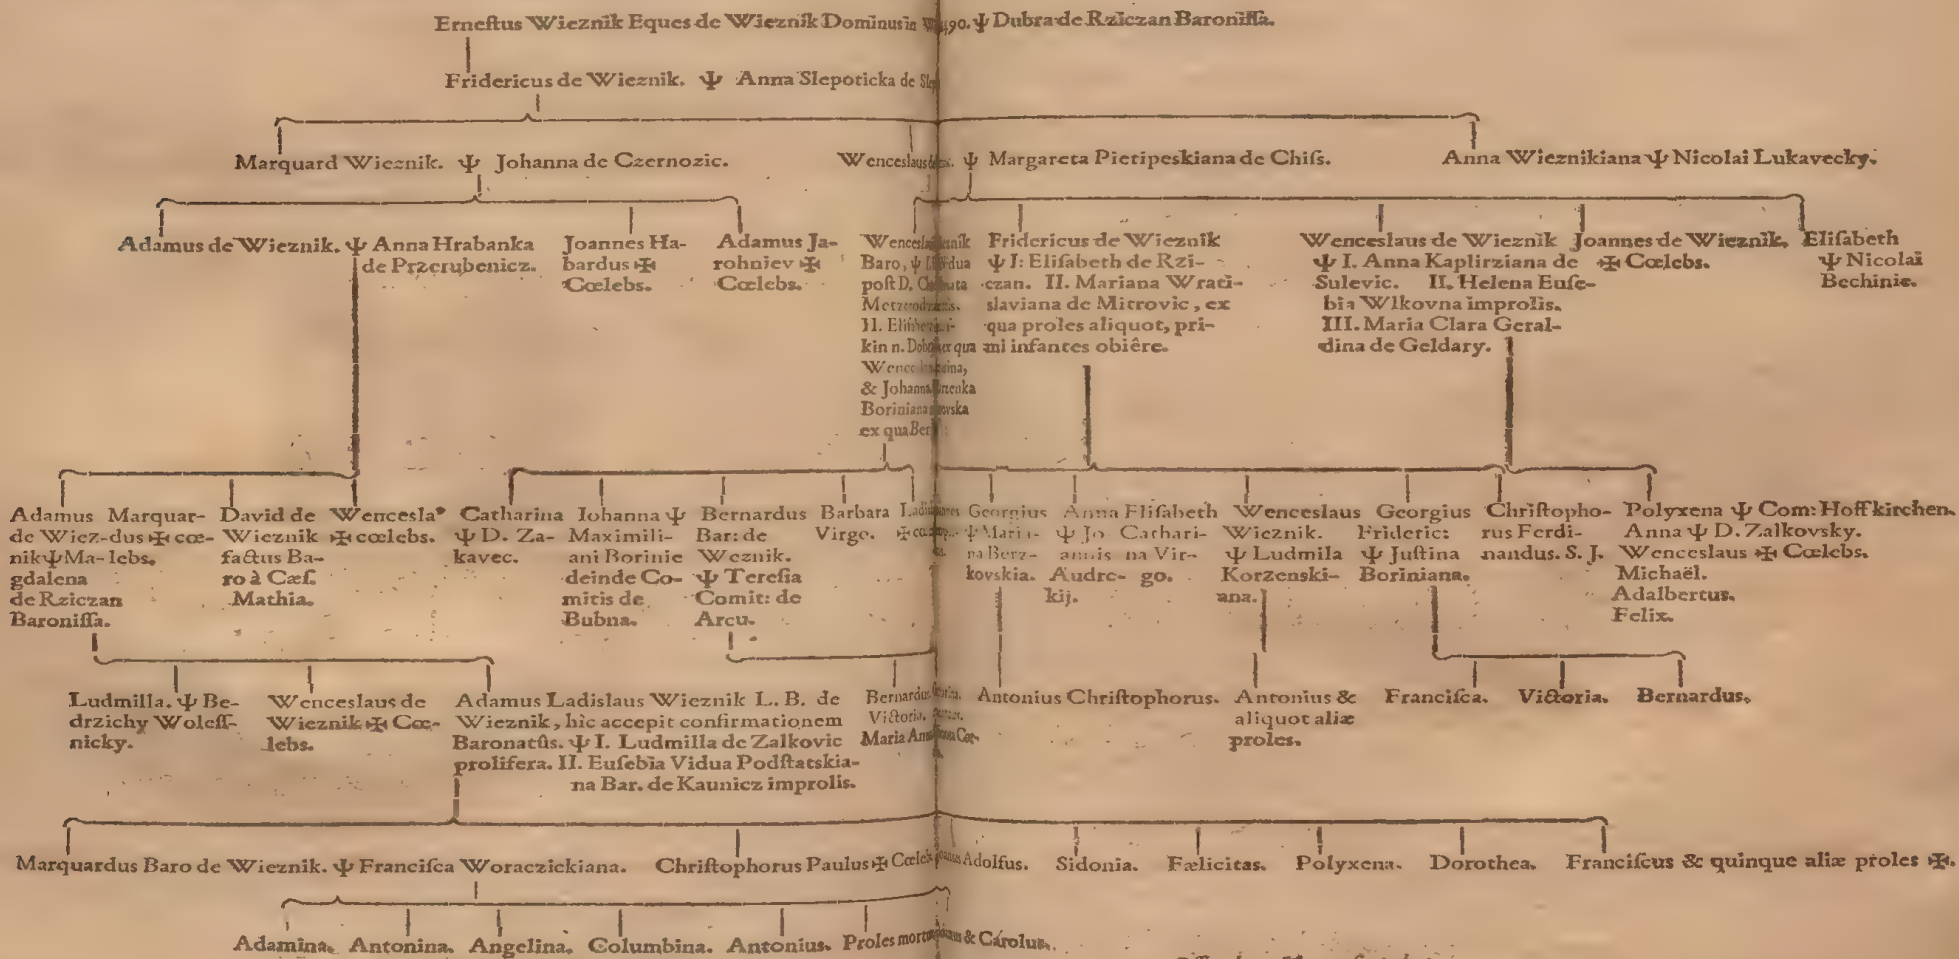 Erneſtus Wieznik Eques de Wieznik Dominus in 90. Ψ Dubra de Rziczan Baroniſſa.
Fridericus de Wieznik. Ψ Anna Slepoticka de
Marquard Wieznik. Ψ Johanna de Czernozic.
Wenceslaus Ψ Margareta Pietipeskiana de Chiſs.
Anna Wieznikiana Ψ Nicolai Lukavecky.
Adamus de Wieznik. Ψ Anna Hrabanka
de Przerubenicz.
Joannes Ha-
bardus ✠
Cœlebs.
Adamus Ja-
rohniev ✠
Cœlebs.
Baro, Ψ
poſt D.
II.
kin n. ex qua
& Johanna
Boriniana
ex qua
Fridericus de Wieznik
Ψ I: Eliſabeth de Rzi-
czan. II. Mariana Wrati-
slaviana de Mitrovic, ex
qua proles aliquot, pri-
mi infantes obiêre.
Wenceslaus de Wieznik
Ψ I. Anna Kaplirziana de
Sulevic. II. Helena Euſe-
bia Wlkovna improlis.
III. Maria Clara Geral-
dina de Geldary.
Joannes de Wieznik.
✠ Cœlebs.
Eliſabeth
Ψ Nicolai
Bechinie.
Adamus
de Wiez-
nik Ψ Ma-
gdalena
de Rziczan
Baroniſſa.
Marquar-
dus ✠ cœ-
lebs.
David de
Wieznik
factus Ba-
ro à Cæſ.
Mathia.
Wencesla⁹
✠ cœlebs.
Catharina
Ψ D. Za-
kavec.
Iohanna Ψ
Maximili-
ani Borinie
deinde Co-
mitis de
Bubna.
Bernardus
Bar: de
Weznik.
Ψ Tereſia
Comit: de
Arcu.
Barbara
Virgo.
Georgius
Ψ Maria-
na Berz-
kovskia.
Anna Eliſabeth
Ψ Jo-
annis
Audre-
kij.
Cathari-
na Vir-
go.
Wenceslaus
Wieznik.
Ψ Ludmila
Korzenski-
ana.
Georgius
Frideric:
Ψ Juſtina
Boriniana.
Chriſtopho-
rus Ferdi-
nandus. S. J.
Polyxena Ψ Com: Hoffkirchen.
Anna Ψ D. Zalkovsky.
Wenceslaus ✠ Cœlebs.
Michaël.
Adalbertus.
Felix.
Ludmilla. Ψ Be-
drzichy Woleſſ-
nicky.
Wenceslaus de
Wieznik ✠ Cœ-
lebs.
Adamus Ladislaus Wieznik L. B. de
Wieznik, hic accepit confirmationem
Baronatûs. Ψ I. Ludmilla de Zalkovic
prolifera. II. Euſebia Vidua Podſtatskia-
na Bar. de Kaunicz improlis.
Bernardus
Victoria.
Maria
Antonius Chriſtophorus.
Antonius &
aliquot aliæ
proles.
Franciſca.
Victoria.
Bernardus.
Marquardus Baro de Wieznik. Ψ Franciſca Woraczickiana.
Chriſtophorus Paulus ✠ Adolfus.
Sidonia.
Fælicitas.
Polyxena.
Dorothea.
Franciſcus & quinque aliæ proles ✠.
Adamina.
Antonina.
Angelina.
Columbina.
Antonius.
Proles & Carolus.